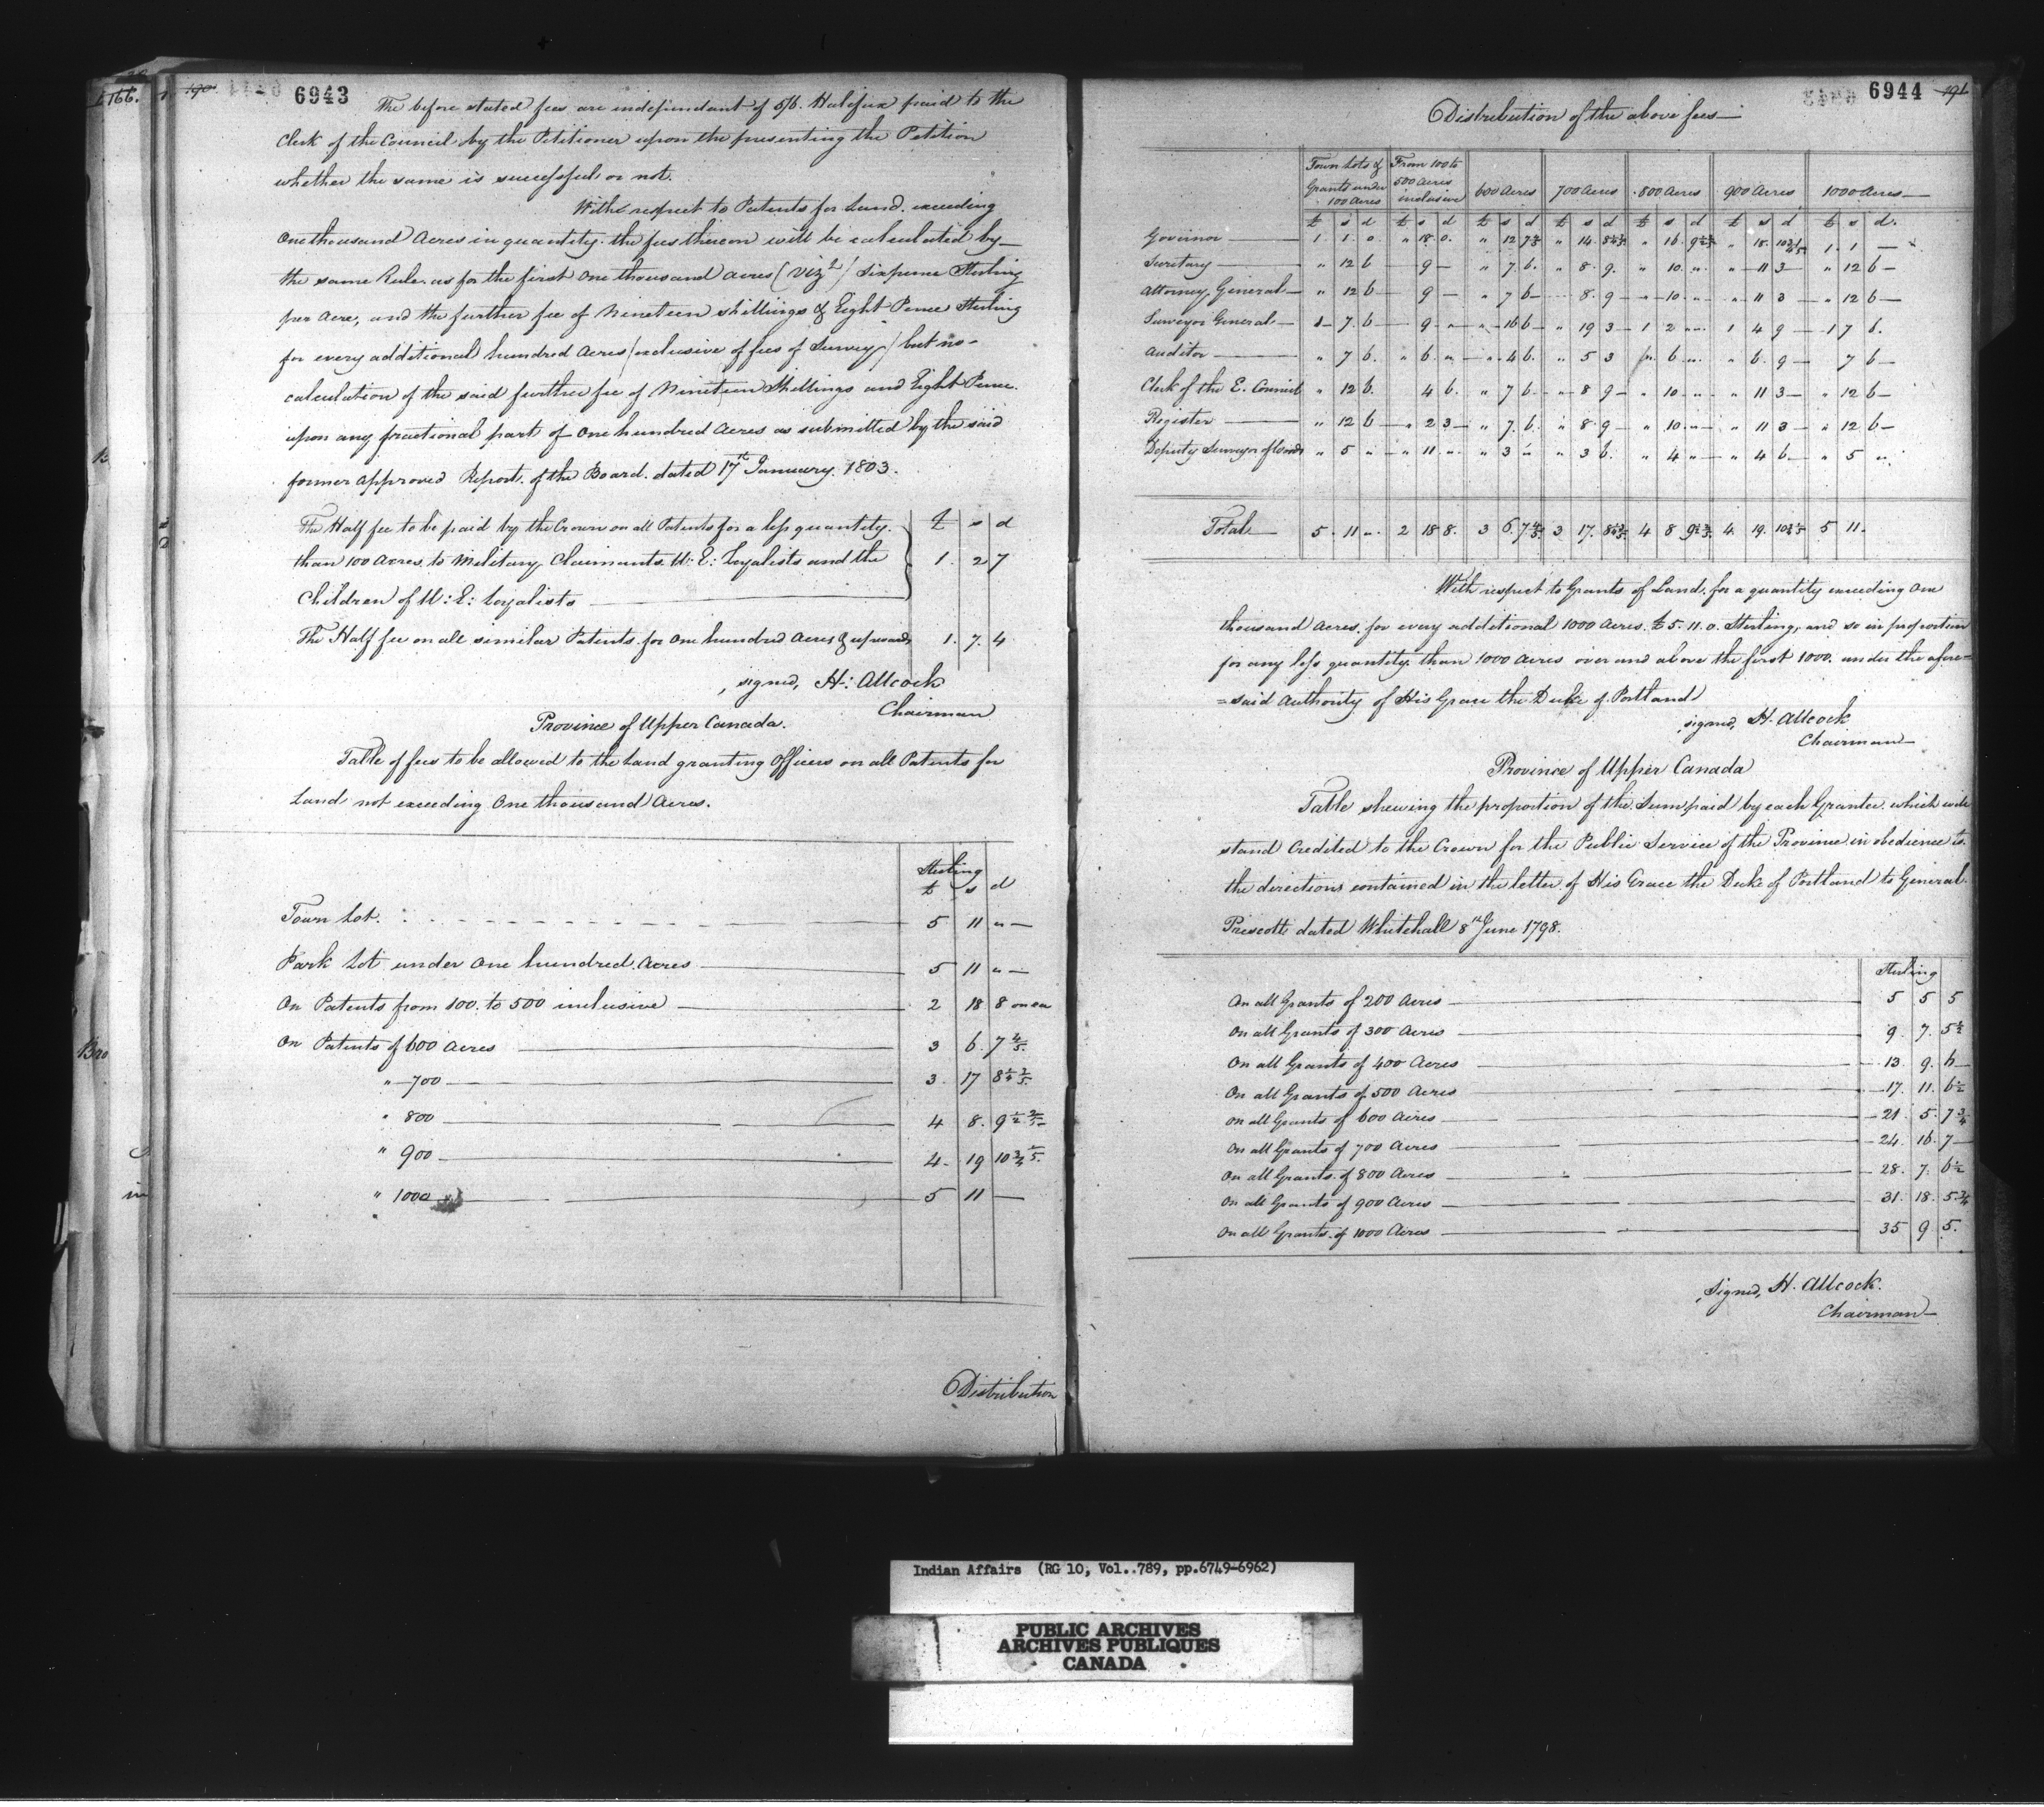 166.
190
6943
The before stated fees are independant of 5/6. Halifax paid to the
Clerk of the Council by the Petitioner upon the presenting the Petition
whether the same is successful or not.
With respect to Patents for Land exceeding
One thousand Acres in quantity the fees thereon will be calculated by
the same Rule as for the first One thousand acres (Vizt) Sixpence Sterling
per Acre, and the further fee of Nineteen shillings & Eight Pence Sterling
for every additional hundred Acres (exclusive of fees of Survey) but no
calculation of the said further fee of Nineteen Shillings and Eight Pence
upon any fractional part of One hundred Acres as submitted by the said
former approved Report of the Board dated 17th January 1803.
£ s d
The Half fee to be paid by the Crown on all Patents for a less quantity
than 100 Acres to Military Claimants U: E: Loyalists and the 1. 2 7
Children of U: E: Loyalists
The Half fee on all similar Patents for One hundred Acres & upwards 1. 7. 4
signed, H: Allcock
Chairman
Province of Upper Canada.
Table of fees to be allowed to the Land granting Officers on all Patents for
Land not exceeding One thousand Acres.
Sterling
£ s d
Town Lot. 5 11 " —
Park Lot under One hundred Acres 5 11 " —
On Patents from 100. to 500 inclusive 2 18 8 on ea
On Patents of 600 Acres 3 6. 7 4/5.
" 700 3. 17 8 1/4 2/5.
" 800 4 8. 9 1/2 2/5
" 900 4. 19 10 3/4 1/5.
" 1000 5 11 —
Distribution
6944
196
Distribution of the above fees
Town Lots & Grants under 100 Acres From 100 to 500 Acres inclusive 600 Acres 700 Acres 800 Acres 900 Acres 1000 Acres
£ s d £ s d £ s d £ s d £ s d £ s d £ s d.
Governor 1. 1. 0. " 18 0. " 12 7 " 14. 8 " 16. 9 " 18. 10 1. 1 —
Secretary " 12 6 — 9 — " 7. 6. " 8. 9. " 10. " " 11 3 " 12 6
Attorney General " 12 6 9 — " 7 6 8. 9 " 10. " " 11 3 " 12 6
Surveyor General 1 7. 6 9 " " 16 6 " 19 3 1 2 " 1 4 9 1 7 6.
Auditor " 7 6. " 6 " " 4 6. " 5 3 " 6 " " 6. 9 7 6
Clerk of the E. Council " 12 6. 4 6. " 7 6 " 8 9 " 10 " " 11 3 " 12 6
Register " 12 6 " 2 3 " 7. 6. " 8. 9 " 10. " " 11 3 " 12 6
Deputy Surveyor of Lands " 5 " " 11 " " 3 " " 3 6. " 4 " " 4 6 " 5 "
Total 5. 11 " 2 18 8. 3 6. 7 4/5 3 17. 8 1/4 2/5 4 8 9 1/2 2/5 4. 19. 10 3/4 1/5 5 11.
With respect to Grants of Land for a quantity exceeding One
thousand Acres, for every additional 1000 Acres £5. 11. 0. Sterling, and so in proportion
for any less quantity than 1000 Acres over and above the first 1000. under the afore=
=said Authority of His Grace the Duke of Portland
signed, H. Allcock
Chairman
Province of Upper Canada
Table shewing the proportion of the Sum paid by each Grantee which will
stand Credited to the Crown for the Public Service of the Province in obedience to
the directions contained in the letter of His Grace the Duke of Portland to General
Prescott dated Whitehall 8th June 1798.
Sterling
On all Grants of 200 Acres 5 5 5
On all Grants of 300 Acres 9. 7. 5 1/2
On all Grants of 400 Acres 13. 9. 6
On all Grants of 500 Acres 17. 11. 6 1/2
On all Grants of 600 Acres 21. 5. 7 3/4
On all Grants of 700 Acres 24. 16. 7
On all Grants of 800 Acres 28. 7. 6 1/2
On all Grants of 900 Acres 31. 18. 5 3/4
On all Grants of 1000 Acres 35 9 5.
Signed, H. Allcock.
Chairman
Indian Affairs (RG 10, Vol..789, pp.6749-6962)
PUBLIC ARCHIVES
ARCHIVES PUBLIQUES
CANADA